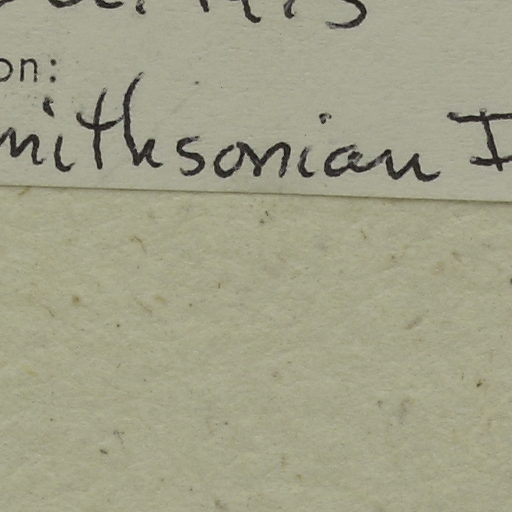 on:
mithsonian I